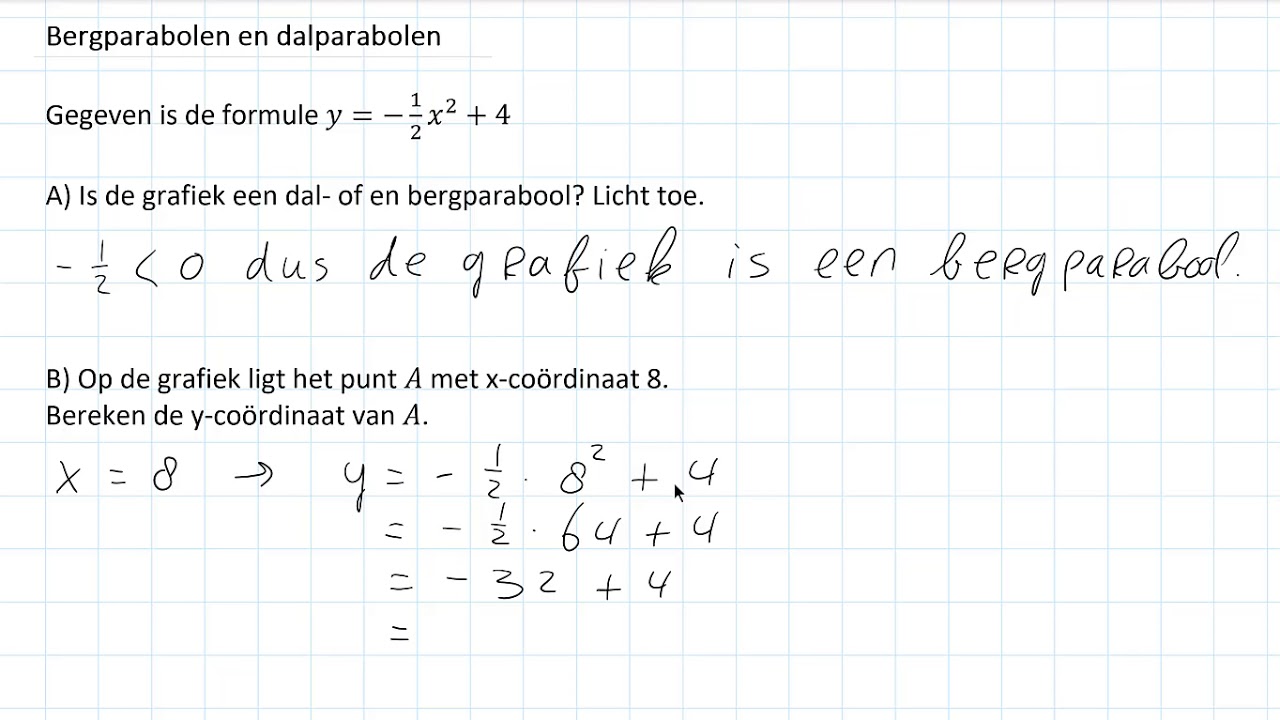 Bergparabolen en dalparabolen
Gegeven is de formule y = −½x² + 4
A) Is de grafiek een dal- of en bergparabool? Licht toe.
- ½ < 0 dus de grafiek is een bergparabool.
B) Op de grafiek ligt het punt A met x-coördinaat 8.
Bereken de y-coördinaat van A.
x = 8 → y = - ½ · 8² + 4
= - ½ · 64 + 4
= - 32 + 4
=